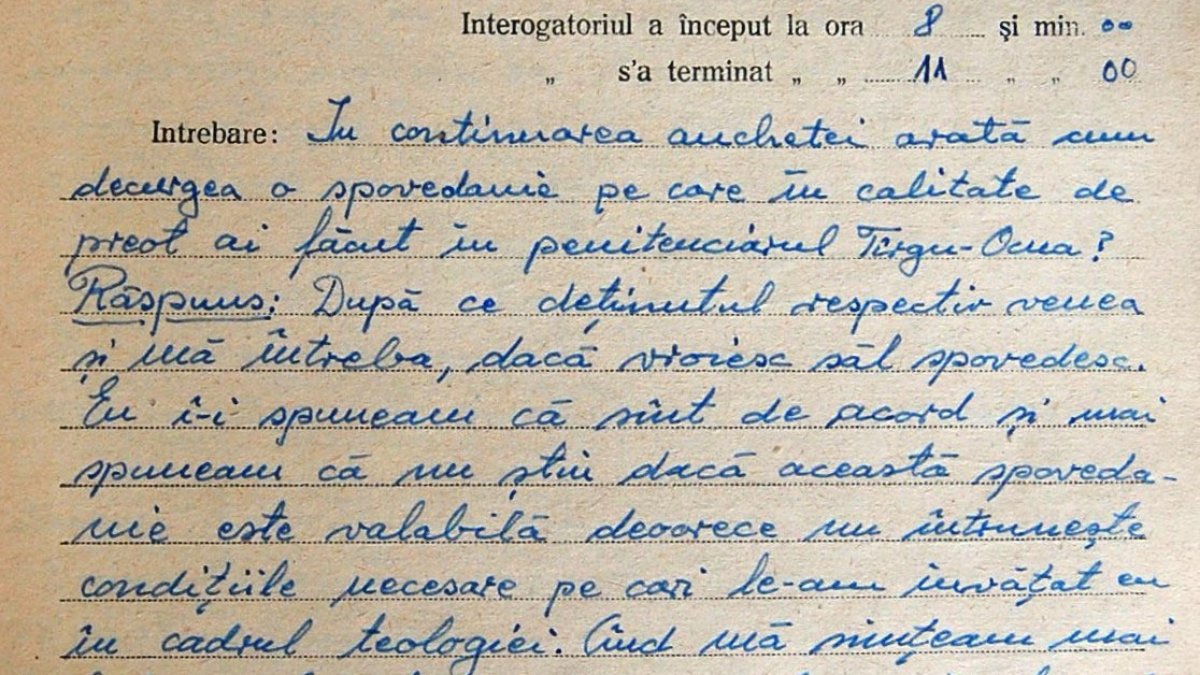 Interogatoriul a început la ora 8 și min. 00
„ s'a terminat „ „ 11 „ „ 00
Intrebare: In continuarea anchetei arată cum
decurgea o spovedanie pe care în calitate de
preot ai făcut în penitenciarul Tîrgu-Ocna?
Răspuns: După ce deținutul respectiv venea
și mă întreba, dacă vroiesc săl spovedesc.
Eu î-i spuneam că sînt de acord și mai
spuneam că nu știu dacă această spoveda-
nie este valabilă deoarece nu întrunește
condițiile necesare pe cari le-am învățat eu
în cadrul teologiei. Cînd mă simțeam mai